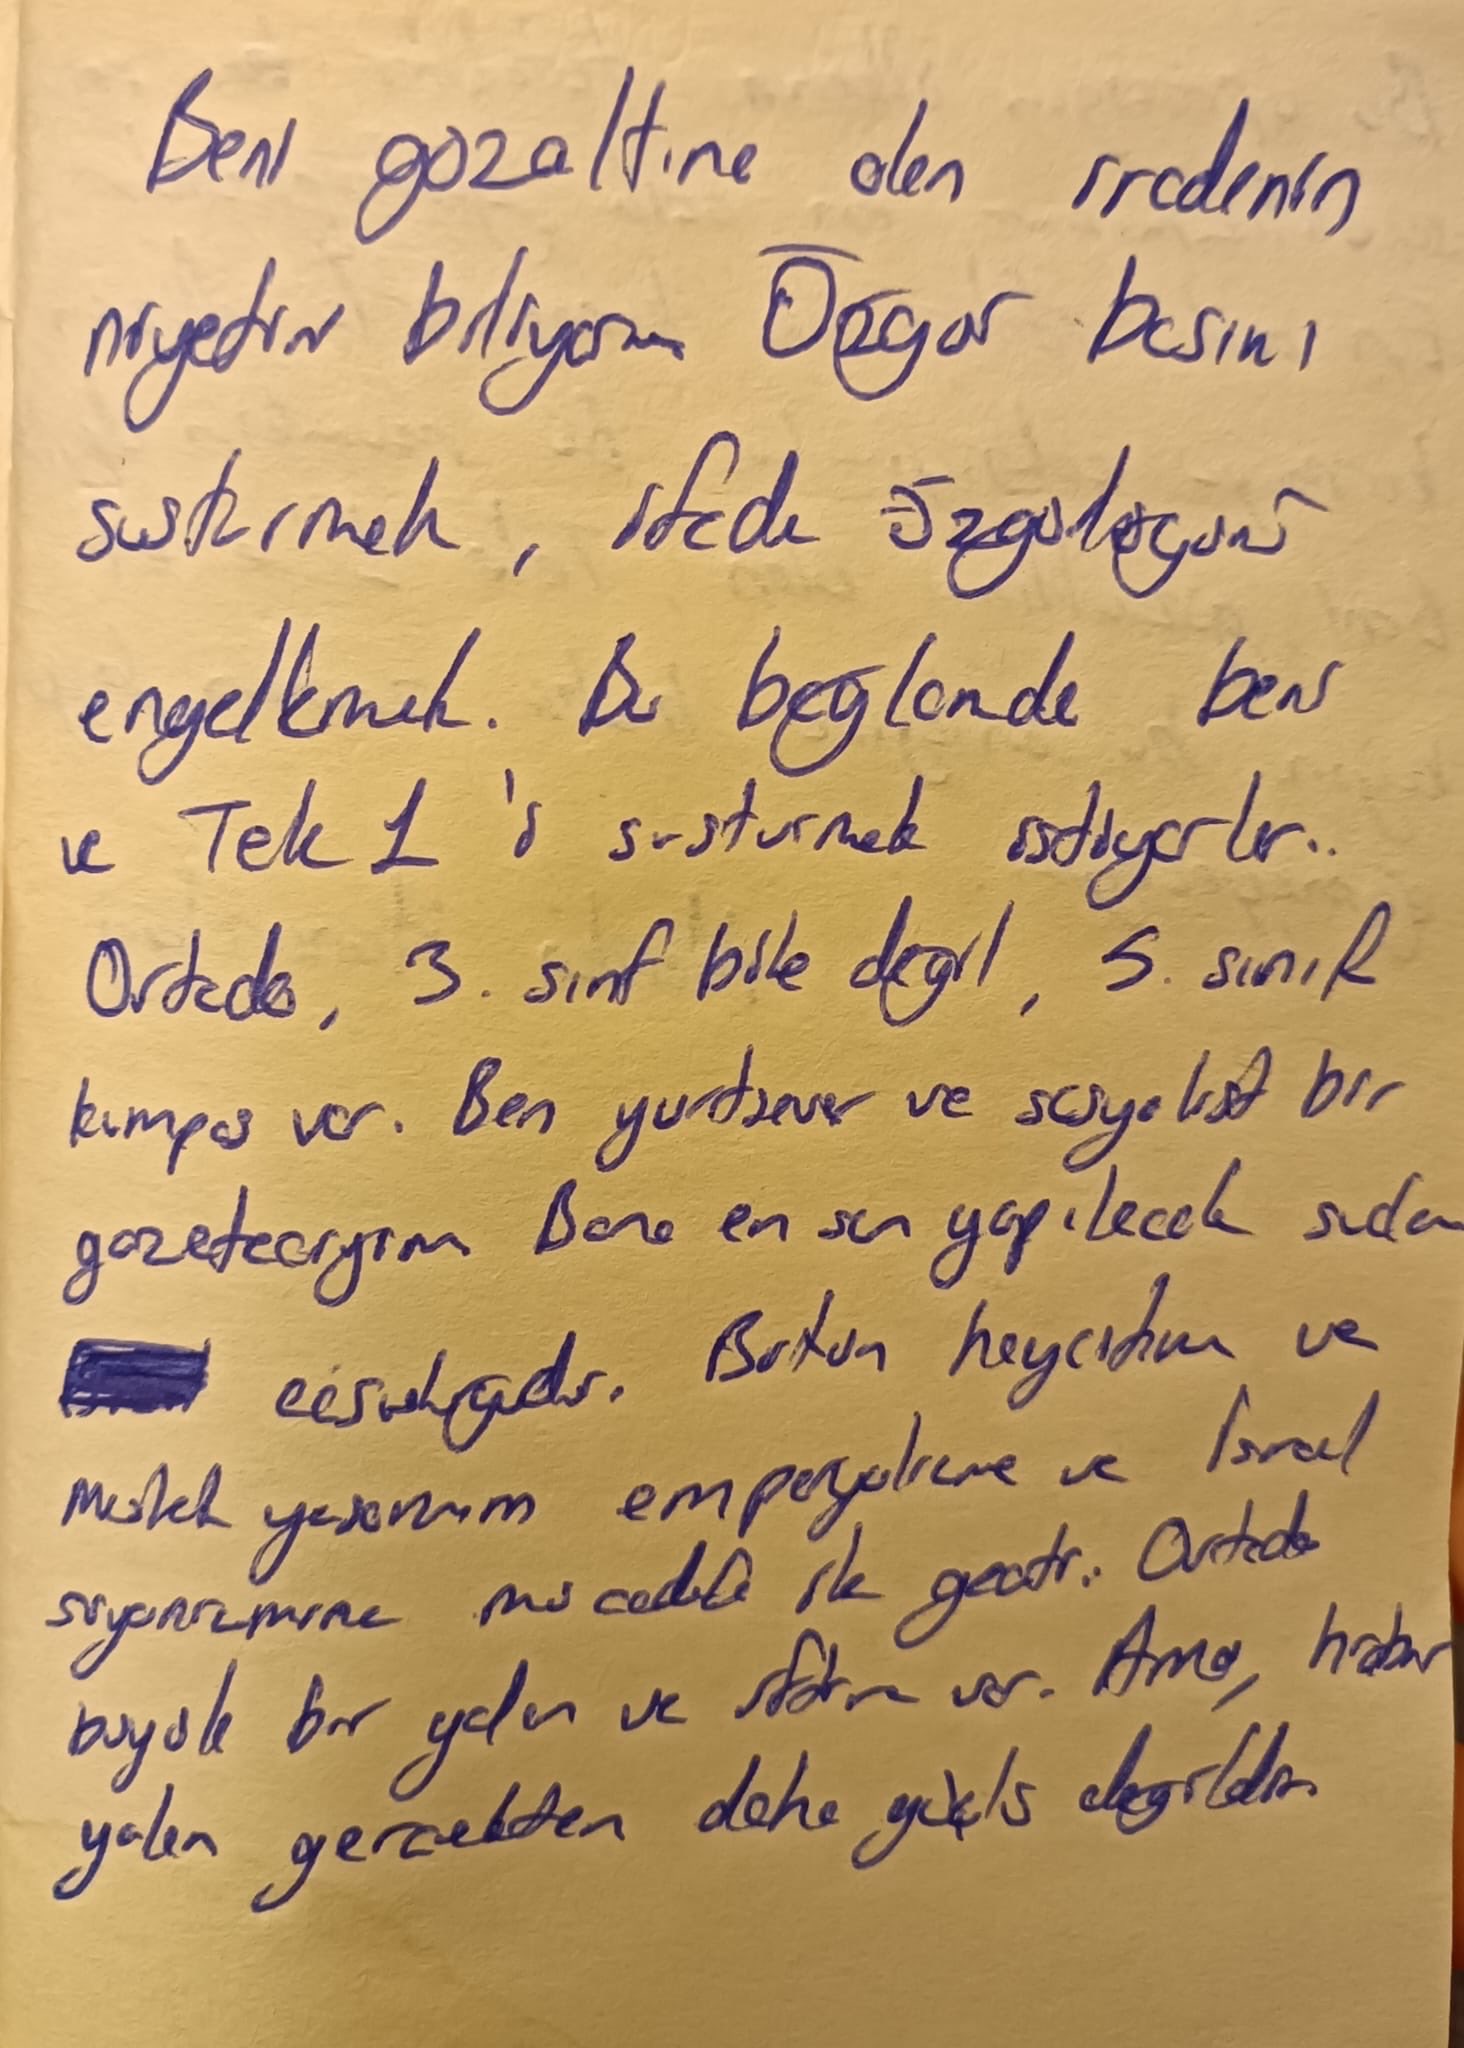 Beni gözaltına alan iradenin
niyetini biliyorum Özgür basını
susturmak, ifade özgürlüğünü
engellemek. Bu bağlamda beni
ve Tele 1'i susturmak istiyorlar..
Ortada, 3. sınıf bile değil, 5. sınıf
kumpas var. Ben yurtsever ve sosyalist bir
gazeteciyim Bana en son yapılacak suçlama
casusluktur. Bütün hayatım ve
meslek yaşamım emperyalizme ve İsrail
siyonizmine mücadele ile geçti.. Ortada
büyük bir yalan ve iftira var. Ama, hiçbir
yalan gerçekten daha güçlü değildir.